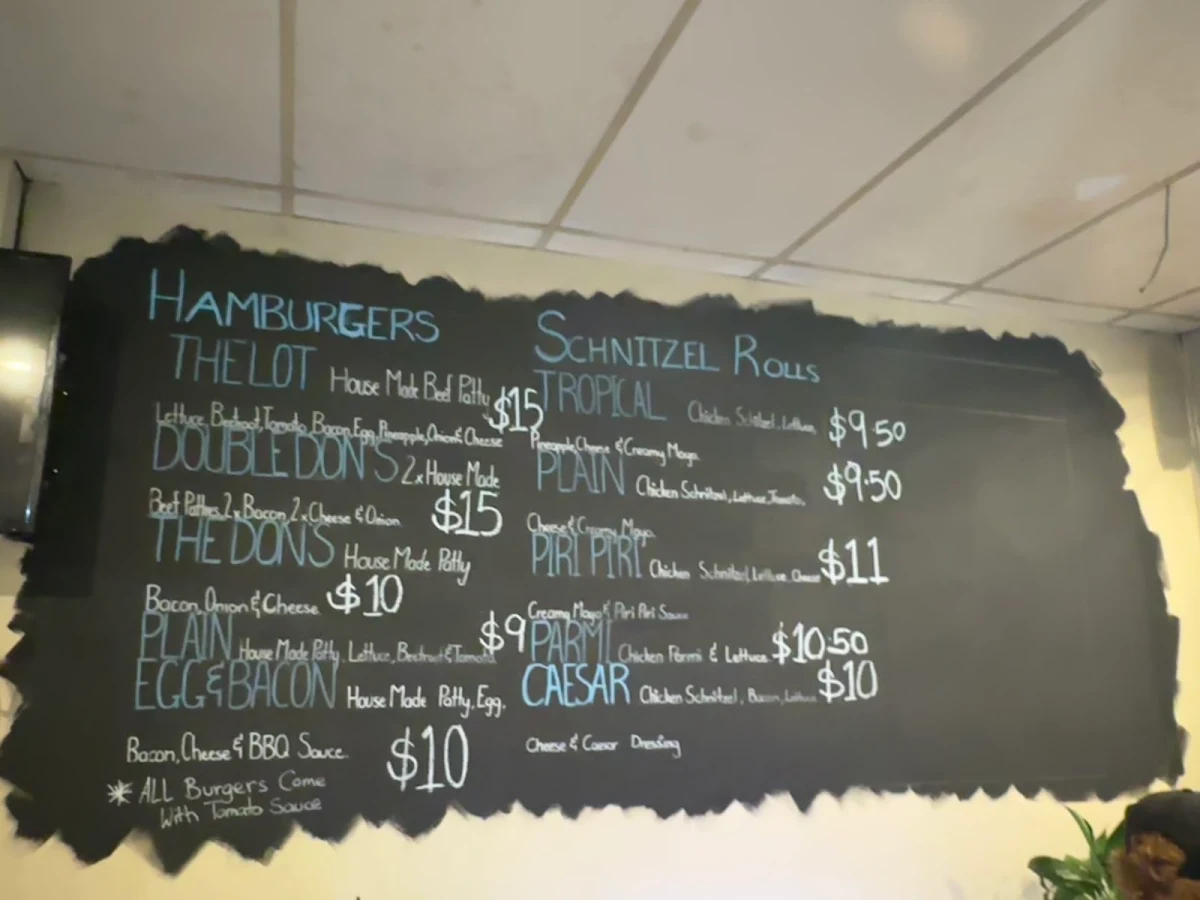 HAMBURGERS
THE LOT House Made Beef Patty $15
Lettuce, Beetroot, Tomato, Bacon, Egg, Pineapple, Onion & Cheese
DOUBLE DON'S 2x House Made
Beef Patties, 2x Bacon, 2x Cheese & Onion $15
THE DON'S House Made Patty
Bacon, Onion & Cheese $10
PLAIN House Made Patty, Lettuce, Beetroot & Tomato $9
EGG & BACON House Made Patty, Egg,
Bacon, Cheese & BBQ Sauce $10
* ALL Burgers Come
With Tomato Sauce
SCHNITZEL ROLLS
TROPICAL Chicken Schnitzel, Lettuce, $9.50
Pineapple, Cheese & Creamy Mayo
PLAIN Chicken Schnitzel, Lettuce, Tomato, $9.50
Cheese & Creamy Mayo
PIRI PIRI Chicken Schnitzel, Lettuce, Cheese $11
Creamy Mayo & Piri Piri Sauce
PARMI Chicken Parmi & Lettuce $10.50
CAESAR Chicken Schnitzel, Bacon, Lettuce $10
Cheese & Caesar Dressing